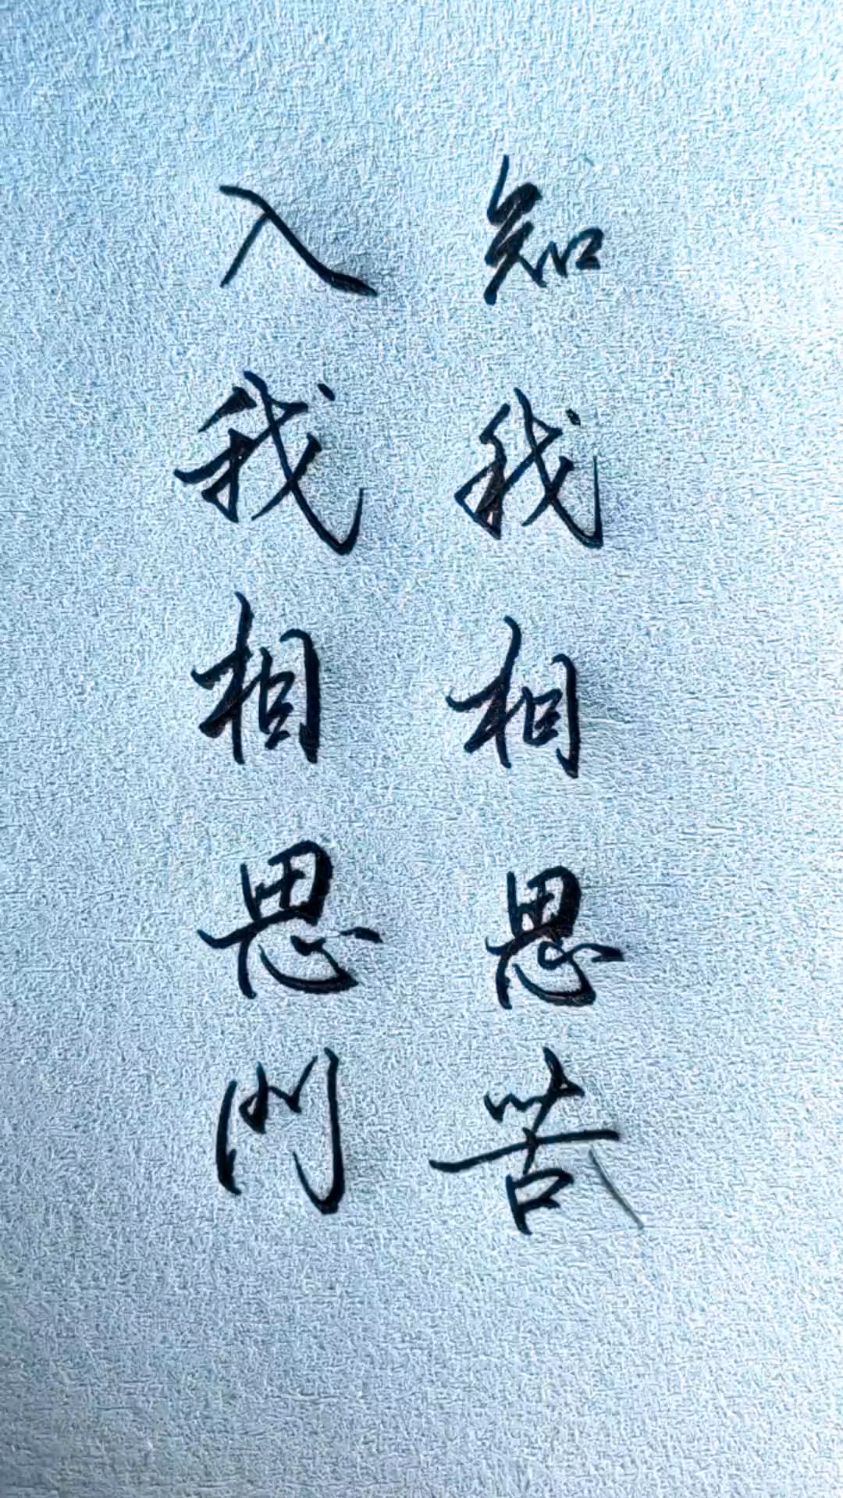 知我相思苦
入我相思门